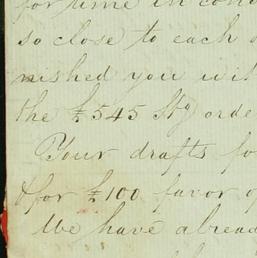 for time in con
so close to each
nished you wit
the £545 Stg orde
Your drafts fo
& for £100 favor of
We have alread